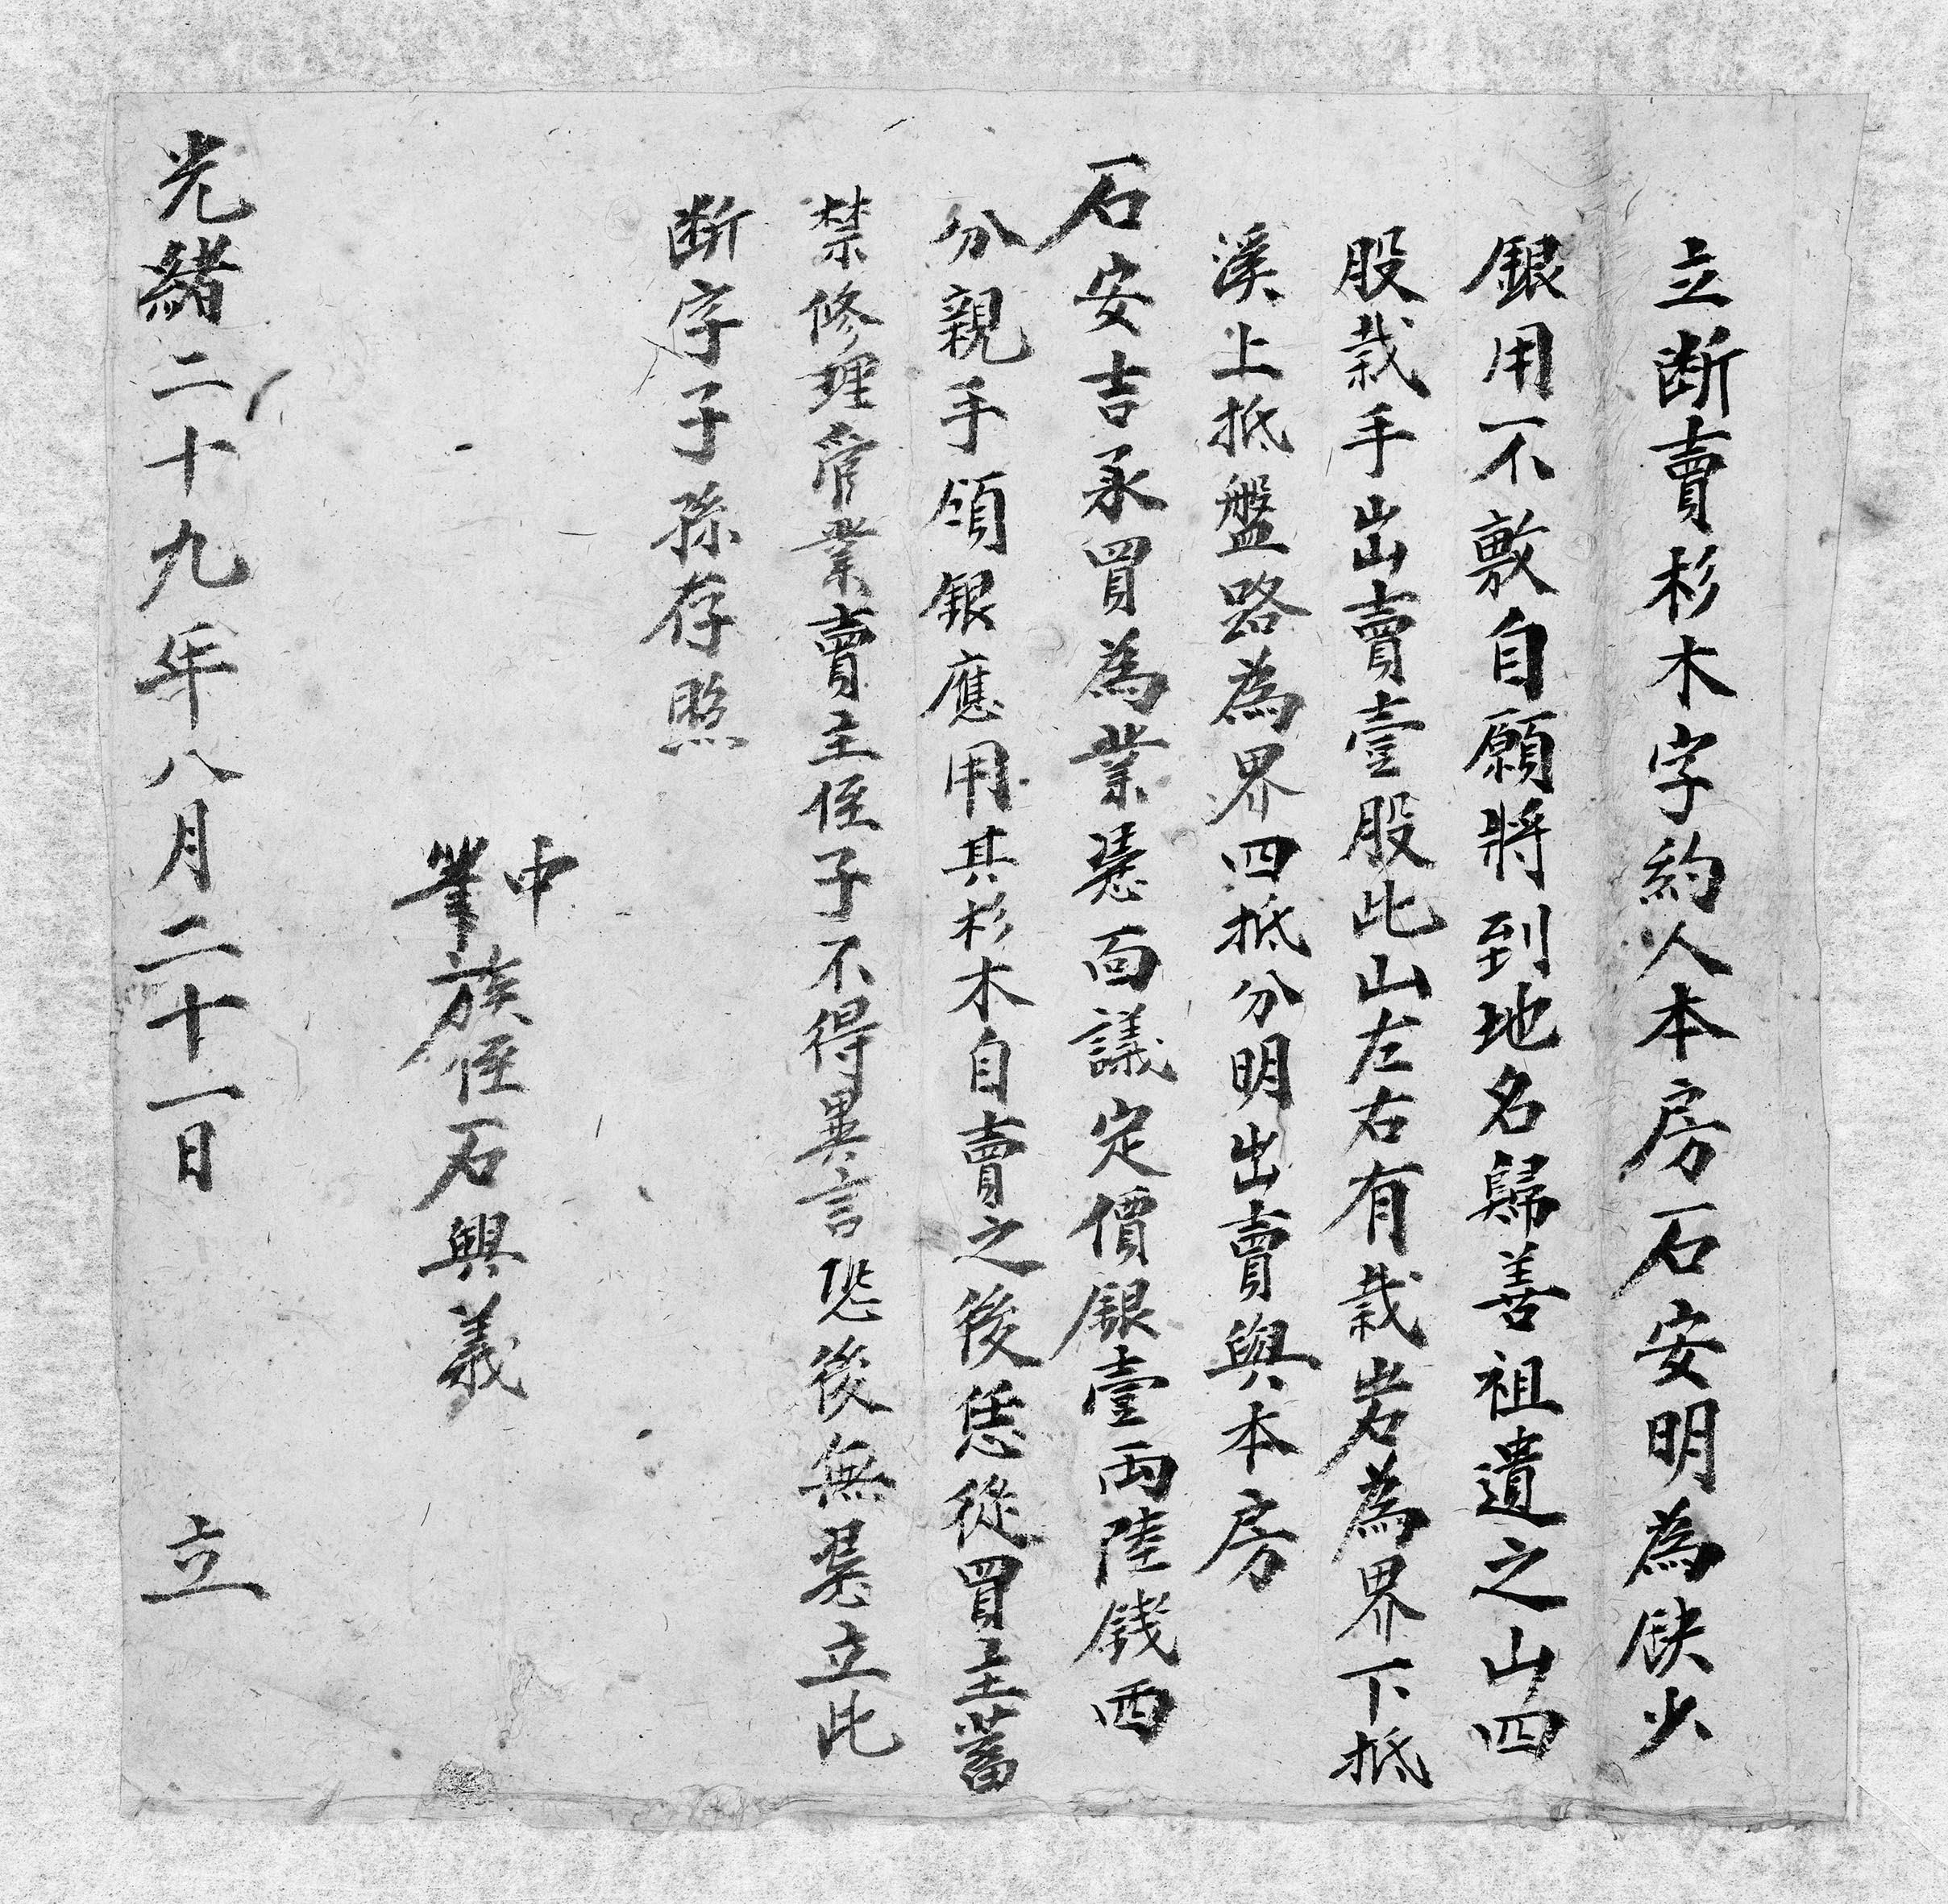 立断賣杉木字約人本房石安明為缺少
銀用不敷自願將到地名歸善祖遺之山四
股栽手出賣壹股此山左右有栽岩為界下抵
溪上抵盤路為界四抵分明出賣與本房
石安吉承買為業憑面議定價銀壹両陸錢西
分親手領銀應用其杉木自賣之後恁從買主蓄
禁修理管業賣主侄子不得異言恐後無憑立此
断字子孫存照
中
筆 族侄石興義
光緒二十九年八月二十一日 立